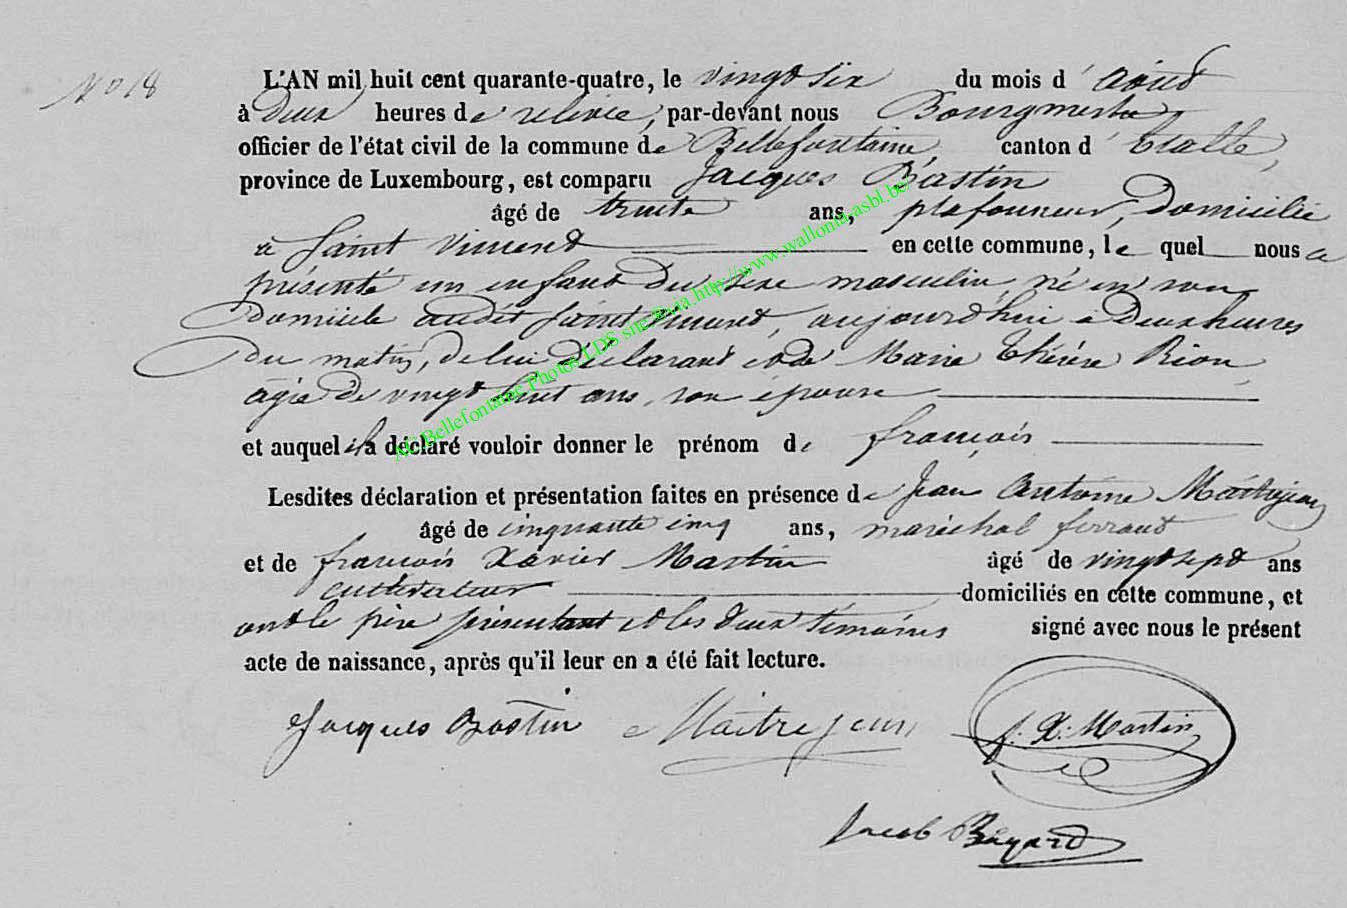 No 18
L'AN mil huit cent quarante-quatre, le vingt six du mois d'août
à deux heures de relevée, par-devant nous Bourgmestre
officier de l'état civil de la commune de Bellefontaine canton d'Etalle,
province de Luxembourg, est comparu Jacques Bastin
âgé de trente ans, plafonneur, domicilié
à Saint Vincent en cette commune, lequel nous a
présenté un enfant du sexe masculin, né en son
domicile audit Saint Vincent, aujourd'hui à deux heures
du matin, de lui déclarant et de Marie Thérèse Rion
agée de vingt huit ans, son épouse
et auquel il a déclaré vouloir donner le prénom de françois
Lesdites déclaration et présentation faites en présence de Jean Antoine Maitrejean
âgé de cinquante cinq ans, maréchal ferrant
et de françois Xavier Martin âgé de vingt sept ans
cultivateur domiciliés en cette commune, et
ont le père présentant et les deux témoins signé avec nous le présent
acte de naissance, après qu'il leur en a été fait lecture.
Jacques Bastin Maitrejean f. X. Martin
Jacob Bayard
AC Bellefontaine Photos LDS site via http://www.wallonia.asbl.be/